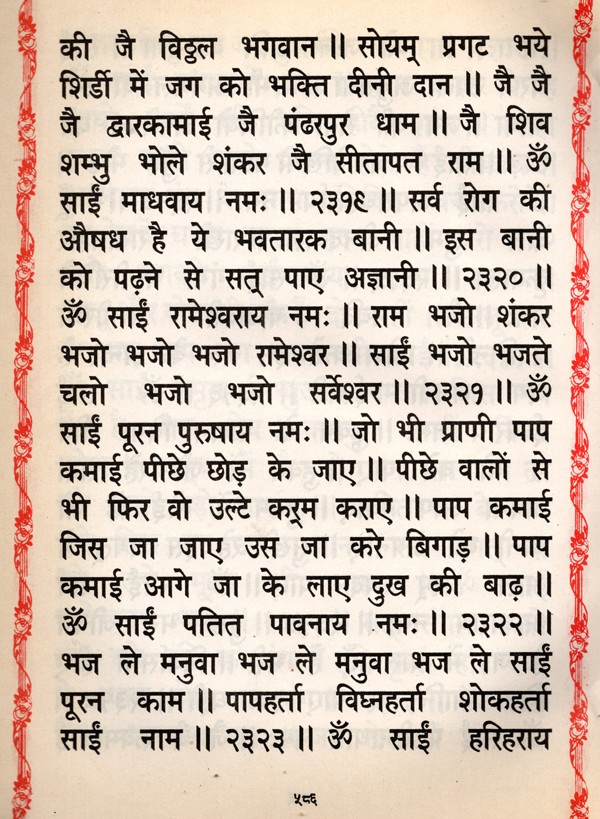 की जै विठ्ठल भगवान॥ सोयम् प्रगट भये
शिर्डी में जग को भक्ति दीनी दान॥ जै जै
जै द्वारकामाई जै पंढरपुर धाम॥ जै शिव
शम्भु भोले शंकर जै सीतापत राम॥ ॐ
साईं माधवाय नमः॥ २३१९॥ सर्व रोग की
औषध है ये भवतारक बानी॥ इस बानी
को पढ़ने से सत् पाए अज्ञानी॥ २३२०॥
ॐ साईं रामेश्वराय नमः॥ राम भजो शंकर
भजो भजो भजो रामेश्वर॥ साईं भजो भजते
चलो भजो भजो सर्वेश्वर॥ २३२१॥ ॐ
साईं पूरन पुरुषाय नमः॥ जो भी प्राणी पाप
कमाई पीछे छोड़ के जाए॥ पीछे वालों से
भी फिर वो उल्टे कर्म कराए॥ पाप कमाई
जिस जा जाए उस जा करे बिगाड़॥ पाप
कमाई आगे जा के लाए दुख की बाढ़॥
ॐ साईं पतित पावनाय नमः॥ २३२२॥
भज ले मनुवा भज ले मनुवा भज ले साईं
पूरन काम॥ पापहर्ता विघ्नहर्ता शोकहर्ता
साईं नाम॥ २३२३॥ ॐ साईं हरिहराय
५८६